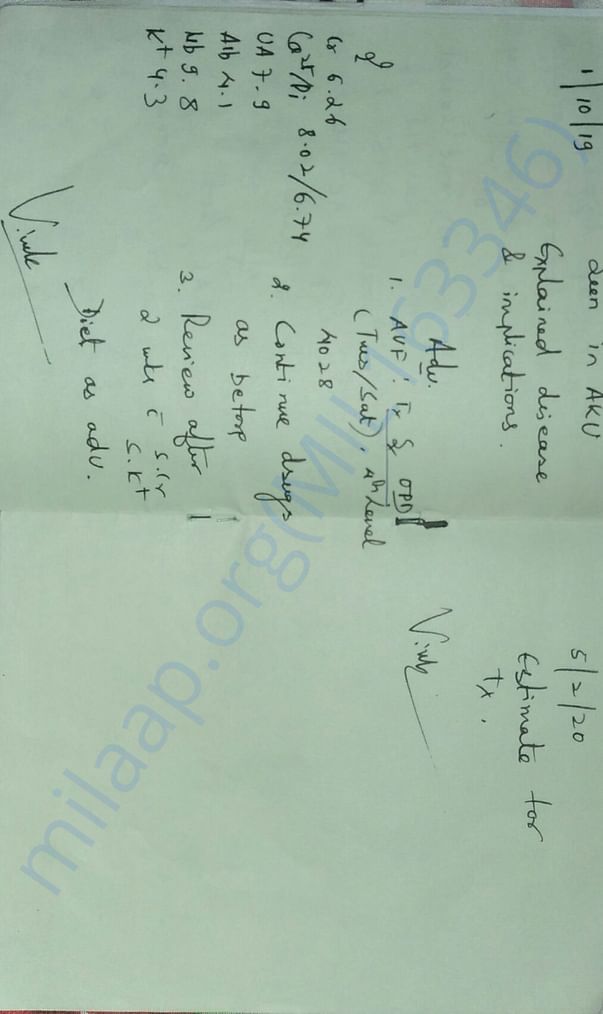 1/10/19
Seen in AKU
Explained disease
& implications.
Cr 6.26
Ca2+/Pi 8.02/6.74
UA 7.9
Alb 4.1
Hb 9.8
K+ 4.3
Adv.
1. AVF: OPD
(Tues/Sat), 4th Level
4028
2. Continue drugs
as before
3. Review after
2 wks c̄ S.Cr
S.K+
Diet as adv.
5/2/20
Estimate for
Tx.
milaap.org(MIL163346)